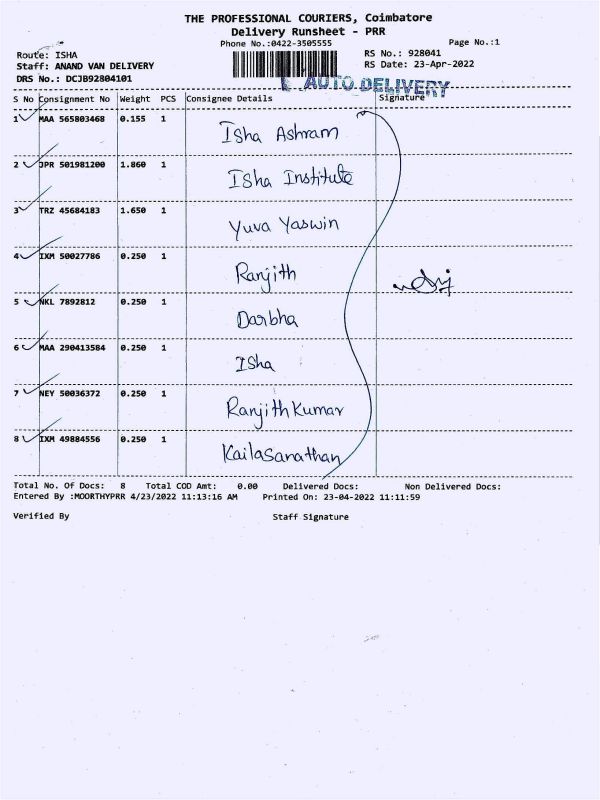 THE PROFESSIONAL COURIERS, Coimbatore
Delivery Runsheet - PRR
Phone No.:0422-3505555 Page No.:1
Route: ISHA RS No.: 928041
Staff: ANAND VAN DELIVERY RS Date: 23-Apr-2022
DRS No.: DCJB92804101
AUTO DELIVERY
S No Consignment No Weight PCS Consignee Details Signature
1 MAA 565803468 0.155 1 Isha Ashram
2 JPR 501981200 1.860 1 Isha Institute
3 TRZ 45684183 1.650 1 Yuva Yaswin
4 IXM 50027786 0.250 1 Ranjith
5 NKL 7892812 0.250 1 Darbha
6 MAA 290413584 0.250 1 Isha
7 NEY 50036372 0.250 1 Ranjith Kumar
8 IXM 49884556 0.250 1 Kailasanathan
Total No. Of Docs: 8 Total COD Amt: 0.00 Delivered Docs: Non Delivered Docs:
Entered By :MOORTHYPRR 4/23/2022 11:13:16 AM Printed On: 23-04-2022 11:11:59
Verified By Staff Signature